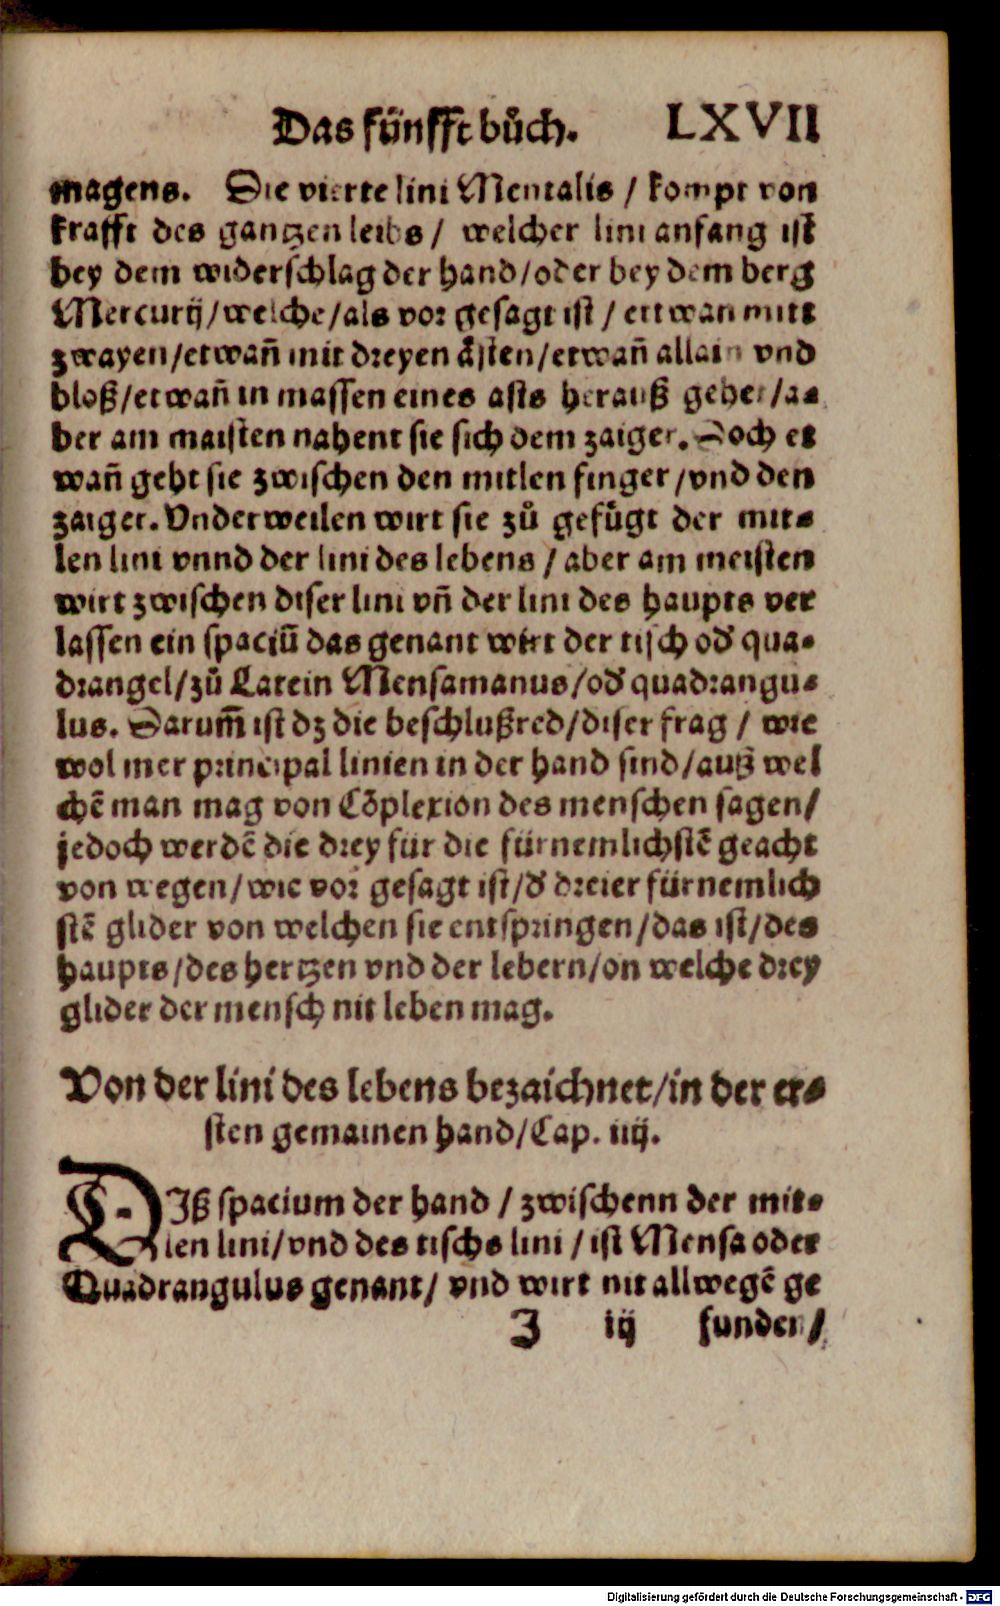 Das fünfft bůch. LXVII
magens. Die vierte lini Mentalis / kompt von
krafft des gantzen leibs / welcher lini anfang ist
bey dem widerschlag der hand/oder bey dem berg
Mercurij/welche/als vor gesagt ist / ettwan mitt
zwayen/etwañ mit dreyen ästen/etwañ allain vnd
bloß/etwañ in massen eines asts herauß gehet/a-
ber am maisten nahent sie sich dem zaiger. Doch et
wañ geht sie zwischen den mitlen finger/vnd den
zaiger. Vnderweilen wirt sie zů gefůgt der mit-
len lini vnnd der lini des lebens / aber am meisten
wirt zwischen diser lini vñ der lini des haupts ver
lassen ein spaciũ das genant wirt der tisch od̕ qua-
drangel/zů Latein Mensamanus/od̕ quadrangu-
lus. Darum̃ ist dz die beschlußred/diser frag / wie
wol mer principal linien in der hand sind/auß wel
chẽ man mag von Cõplexion des menschen sagen/
jedoch werdẽ die drey für die fürnemlichstẽ geacht
von wegen/wie vor gesagt ist/d̕ dreier fürnemlich
stẽ glider von welchen sie entspringen/das ist/des
haupts/des hertzen vnd der lebern/on welche drey
glider der mensch nit leben mag.
Von der lini des lebens bezaichnet/in der er-
sten gemainen hand/Cap. iiij.
DIß spacium der hand / zwischenn der mit-
len lini/vnd des tischs lini / ist Mensa oder
Quadrangulus genant/ vnd wirt nit allwegẽ ge
J iij funden/
Digitalisierung gefördert durch die Deutsche Forschungsgemeinschaft - DFG